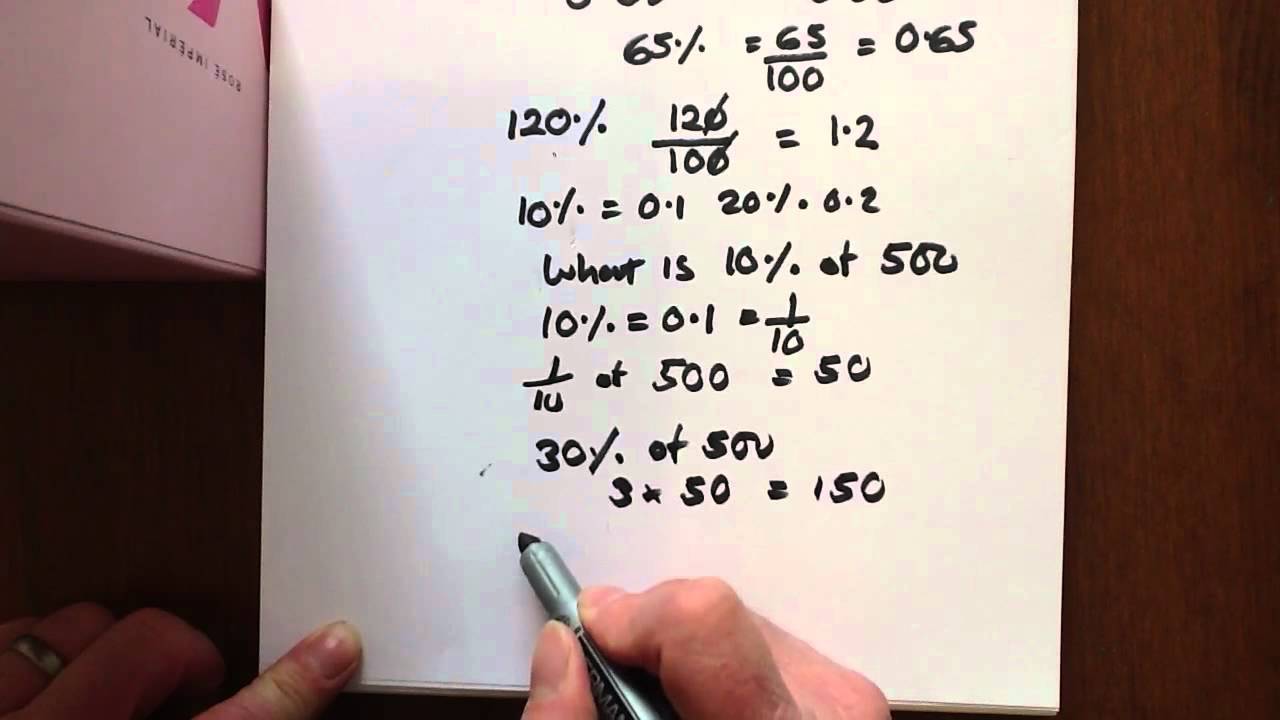 65% = 65/100 = 0.65
120% 120/100 = 1.2
10% = 0.1 20% 0.2
What is 10% of 500
10% = 0.1 = 1/10
1/10 of 500 = 50
30% of 500
3 × 50 = 150
ROSÉ IMPÉRIAL